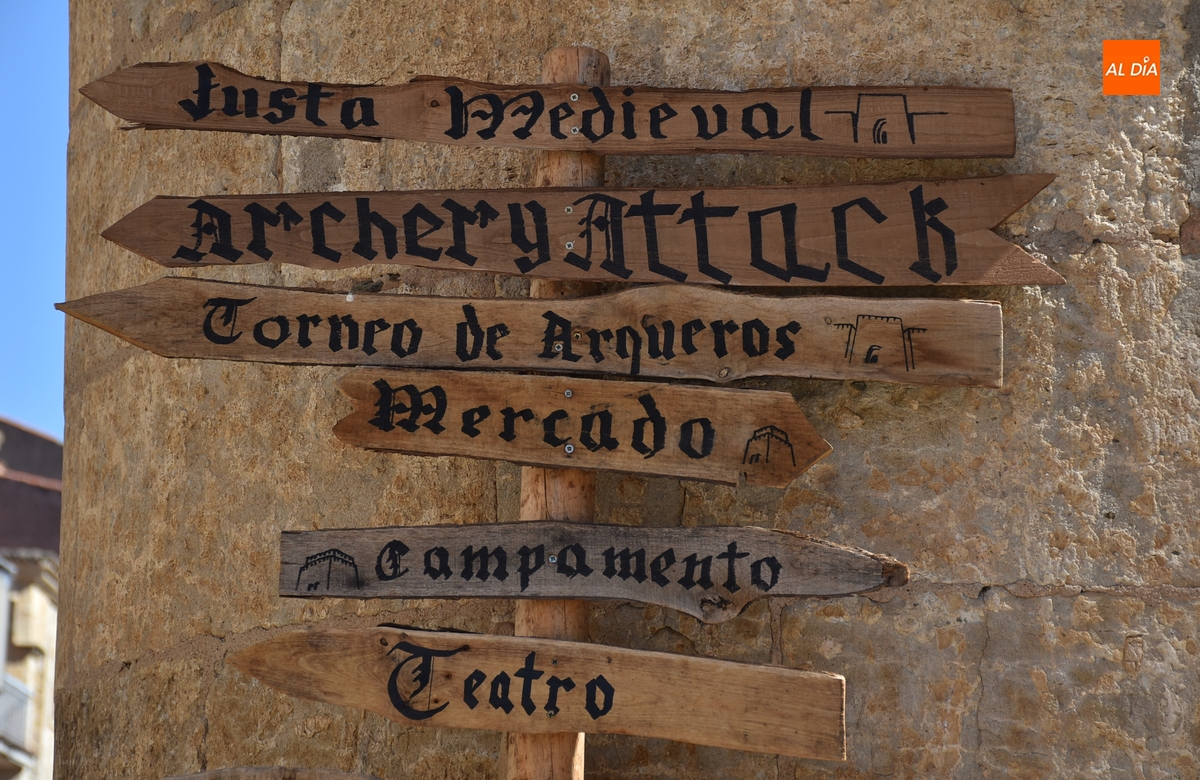 AL DÍA
Justa Medieval
Archery Attack
Torneo de Arqueros
Mercado
Campamento
Teatro